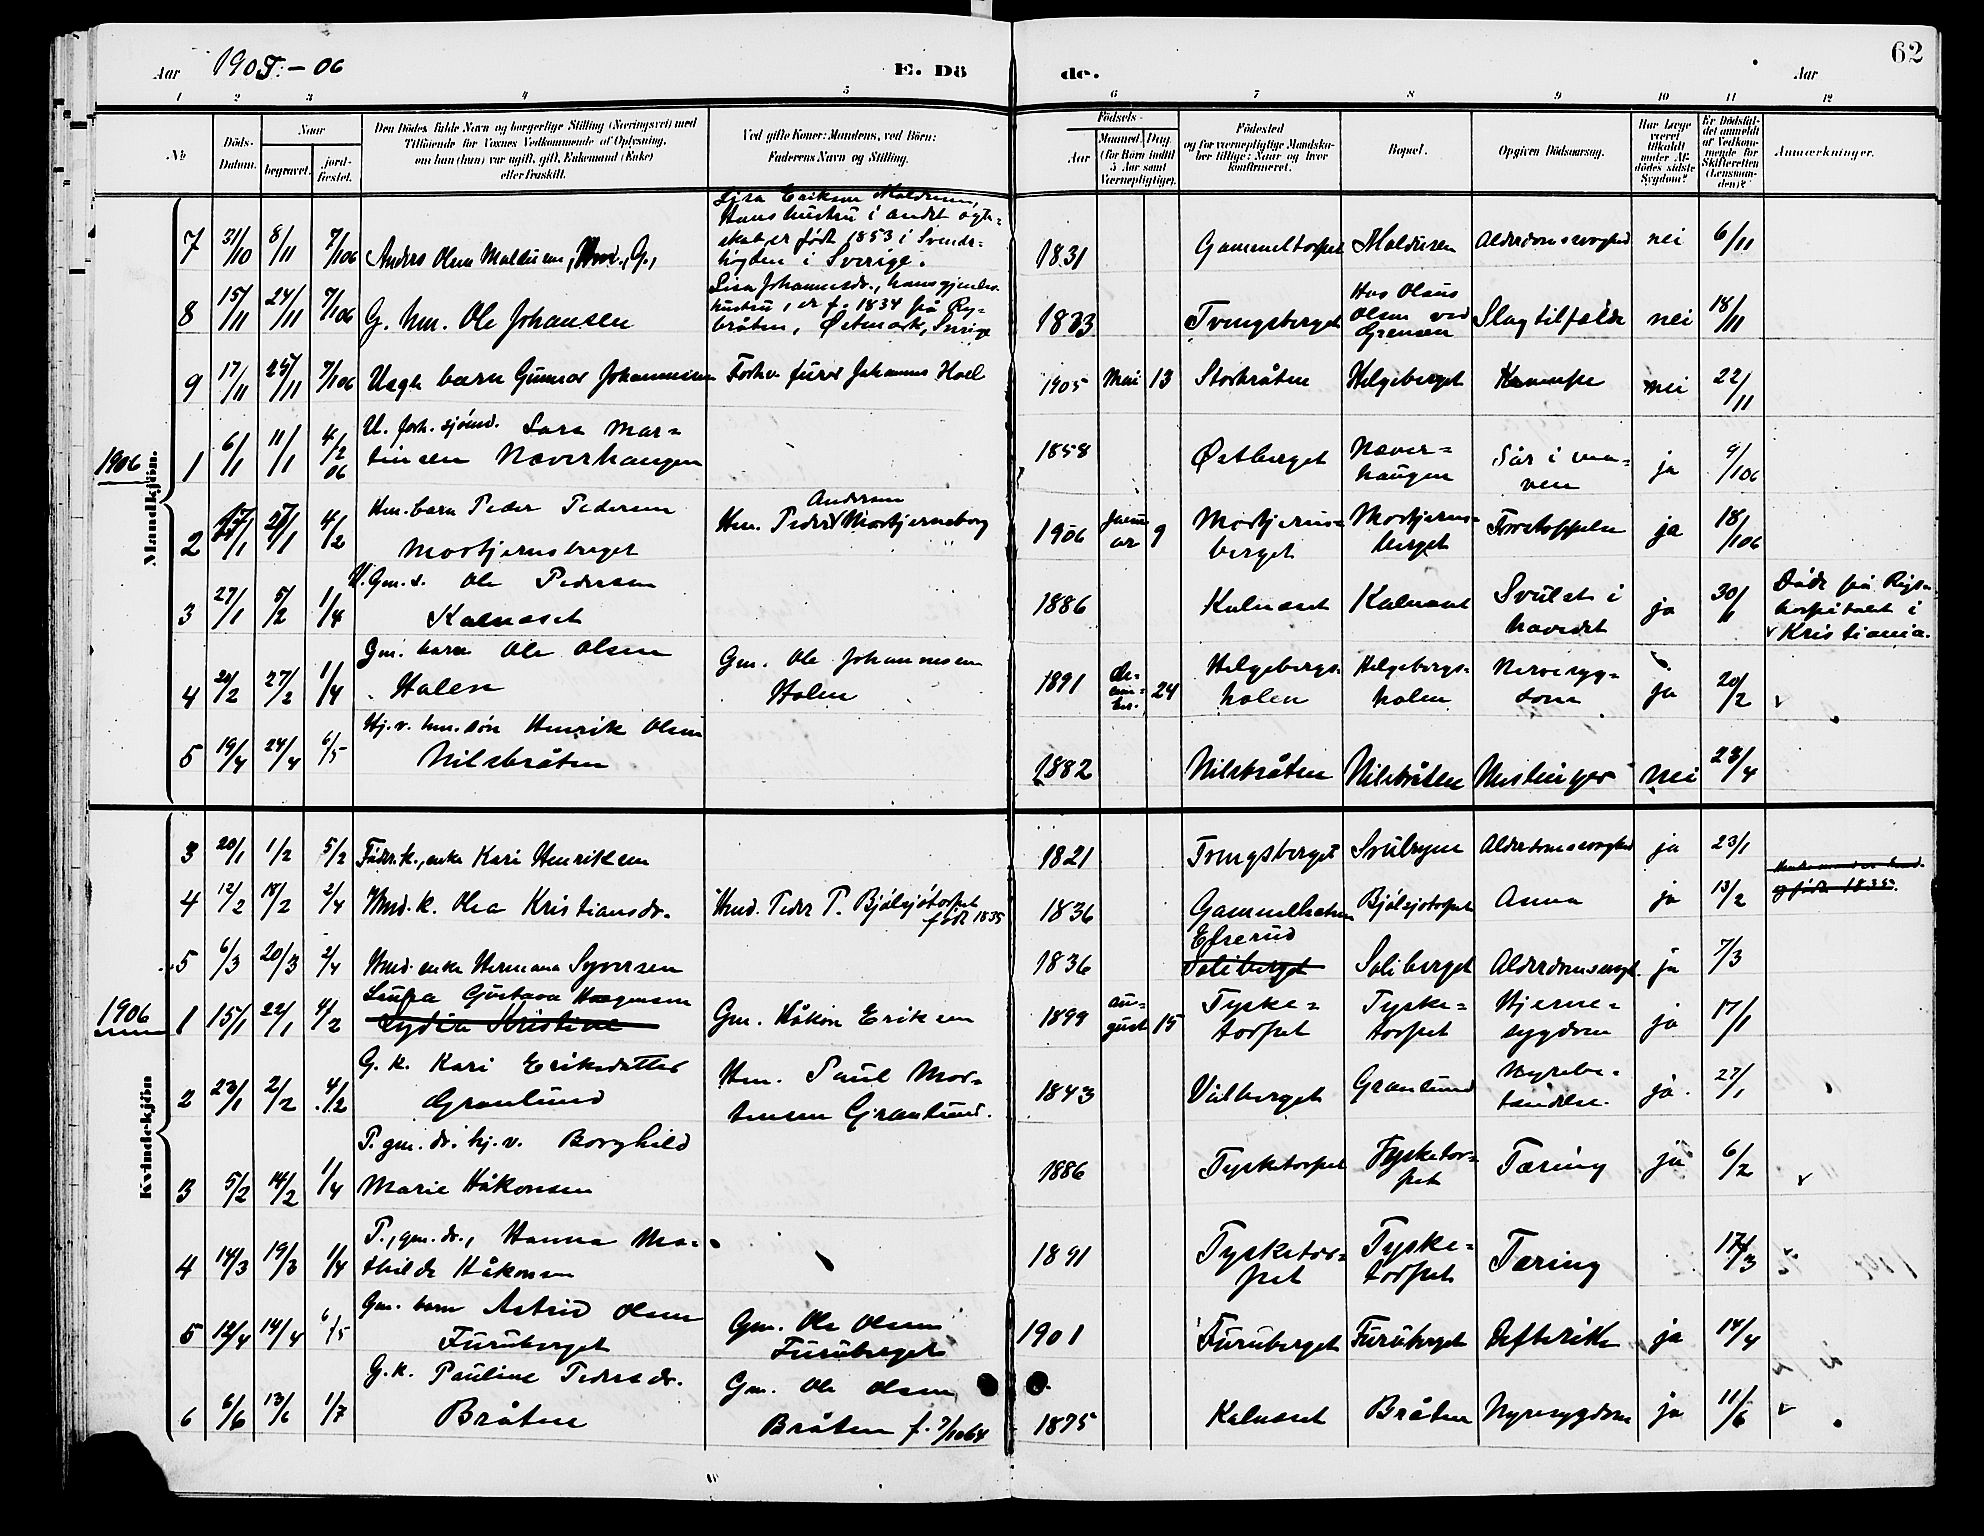 62
Aar 1905.-06 E. Dö de. Aar
1 2 3 4 5 6 7 8 9 10 11 12
No Döds-Datum. Naar begravet. jord-fæstet.
Den Dödes fulde Navn og borgerlige Stilling (Næringsvei) med
Tilföiende for Voxnes Vedkommende af Oplysning,
om han (hun) var ugift, gift, Enkemand (Enke)
eller fraskilt.
Ved gifte Koner: Mandens, ved Börn:
Faderens Navn og Stilling.
Födsels-
Aar Maaned Dag
(for Börn indtil
5 Aar samt
Værnepligtige).
Födested
og for værnepligtige Mandska-
ber tillige: Naar og hvor
konfirmeret.
Bopæl.
Opgiven Dödsaarsag.
Har Læge
været
tilkaldt
under Af-
dödes sidste
Sygdom?
Er Dödsfal-
det anmeldt
af Vedkom-
mende for
Skifteretten
(Lensman-
den)?
Anmærkninger.
Mandkjön.
Lisa Eriksen Malduren,
Hans hustru i andet egte-
skab er født 1853 i Svends-
høgden i Sverige.
7 31/10 8/11 7/1 06 Anders Olsen Malduren, G., 1831 Gammeltorpet Malduren Alderdomssvaghed nei 6/11
Lisa Johannesdr., hans gjenlev.
hustru, er f. 1834 på Ry-
bråten, Østmark, Sverige
8 15/11 24/11 7/1 06 G. hm. Ole Johansen 1833 Tvengsberget Hos Olaus
Olsen ved
Grensen Slagtilfælde nei 18/11
9 17/11 25/11 7/1 06 Uegte barn Gunnar Johannesen Forhv. furer Johannes Hoel 1905 Mai 13 Storbråten Helgeberget Krampe nei 22/11
1906
1 6/1 11/1 4/2 06 U. forh. sjömd. Lars Mar-
tinsen Næverhaugen 1858 Østberget Næver-
haugen Sår i ma-
ven ja 9/1 06
2 4/2 Hm. barn Peder Pedersen
Mostjernsberget Hm. Peder Andersen Mostjernsberg 1906 Janu-
ar 9 Mostjerns-
berget Mostjerns-
berget Forstoppelse ja 18/1 06
3 27/1 5/2 1/4 U. Gm. s. Ole Pedersen
Kalneset 1886 Kalneset Kalneset Svulst i
hovedet ja 30/1 Døde på Rigs-
hospitalet i
Kristiania.
4 20/2 27/2 1/4 Gm. barn Ole Olsen
Holen Gm. Ole Johannesen
Holen 1891 de-
cem-
ber. 24 Helgebergs-
holen Helgebergs-
holen Nervesyg-
dom ja 20/2
5 19/4 24/4 6/5 Hj. v. hm. søn Henrik Olsen
Nilsbråten 1882 Nilsbråten Nilsbråten Mæslinger nei 23/4
Kvindekjön
3 20/1 1/2 5/2 Föder.k., enke Kari Henriksen 1821 Tvengsberget Svulryen Alderdomssvaghed ja 23/1
4 12/2 18/2 2/4 Hmd. k. Olea Kristiansdr. Hmd. Peder P. Bjölsjötorpet
født 1835 1836 Gammelsætren Bjölsjötorpet ja 13/2 født 1835.
5 6/3 20/3 2/4 Hmd. enke Hermana Syversen 1836 Efserud
Soliberget Soliberget Alderdomssvagh. ja 7/3
1906
1 15/1 22/1 4/2 Gustava Haagensen
Lydia Kristine Gm. Håkon Eriksen 1899 au-
gust 15 Tyske-
torpet Tyske-
torpet Hjerne-
sygdom ja 17/1
2 23/1 2/2 4/2 G. k. Kari Eriksdatter
Granlund Hm. Paul Mor-
tensen Granlund. 1843 Vålberget Granlund Nyrebe-
tændelse. ja. 27/1
3 5/2 14/2 1/4 P. gm. dr. hj. v. Borghild
Marie Håkonsen 1886 Tysketorpet Tysketor-
pet Tæring ja 6/2
4 14/3 19/3 1/4 P., gm. dr., Hanna Ma-
thilde Håkonsen 1891 Tysketor-
pet Tyske-
torpet Tæring 17/3
5 12/4 14/4 6/5 Gm. barn Astrid Olsen
Furuberget Gm. Ole Olsen
Furuberget 1901 Furuberget Furuberget Difterik ja 14/4
6 6/6 13/6 1/7 G. k. Pauline Pedersdr.
Bråten Gm. Ole Olsen
Bråten f. 7/10 64 1875 Kalneset Bråten Nyresygdom ja 11/6